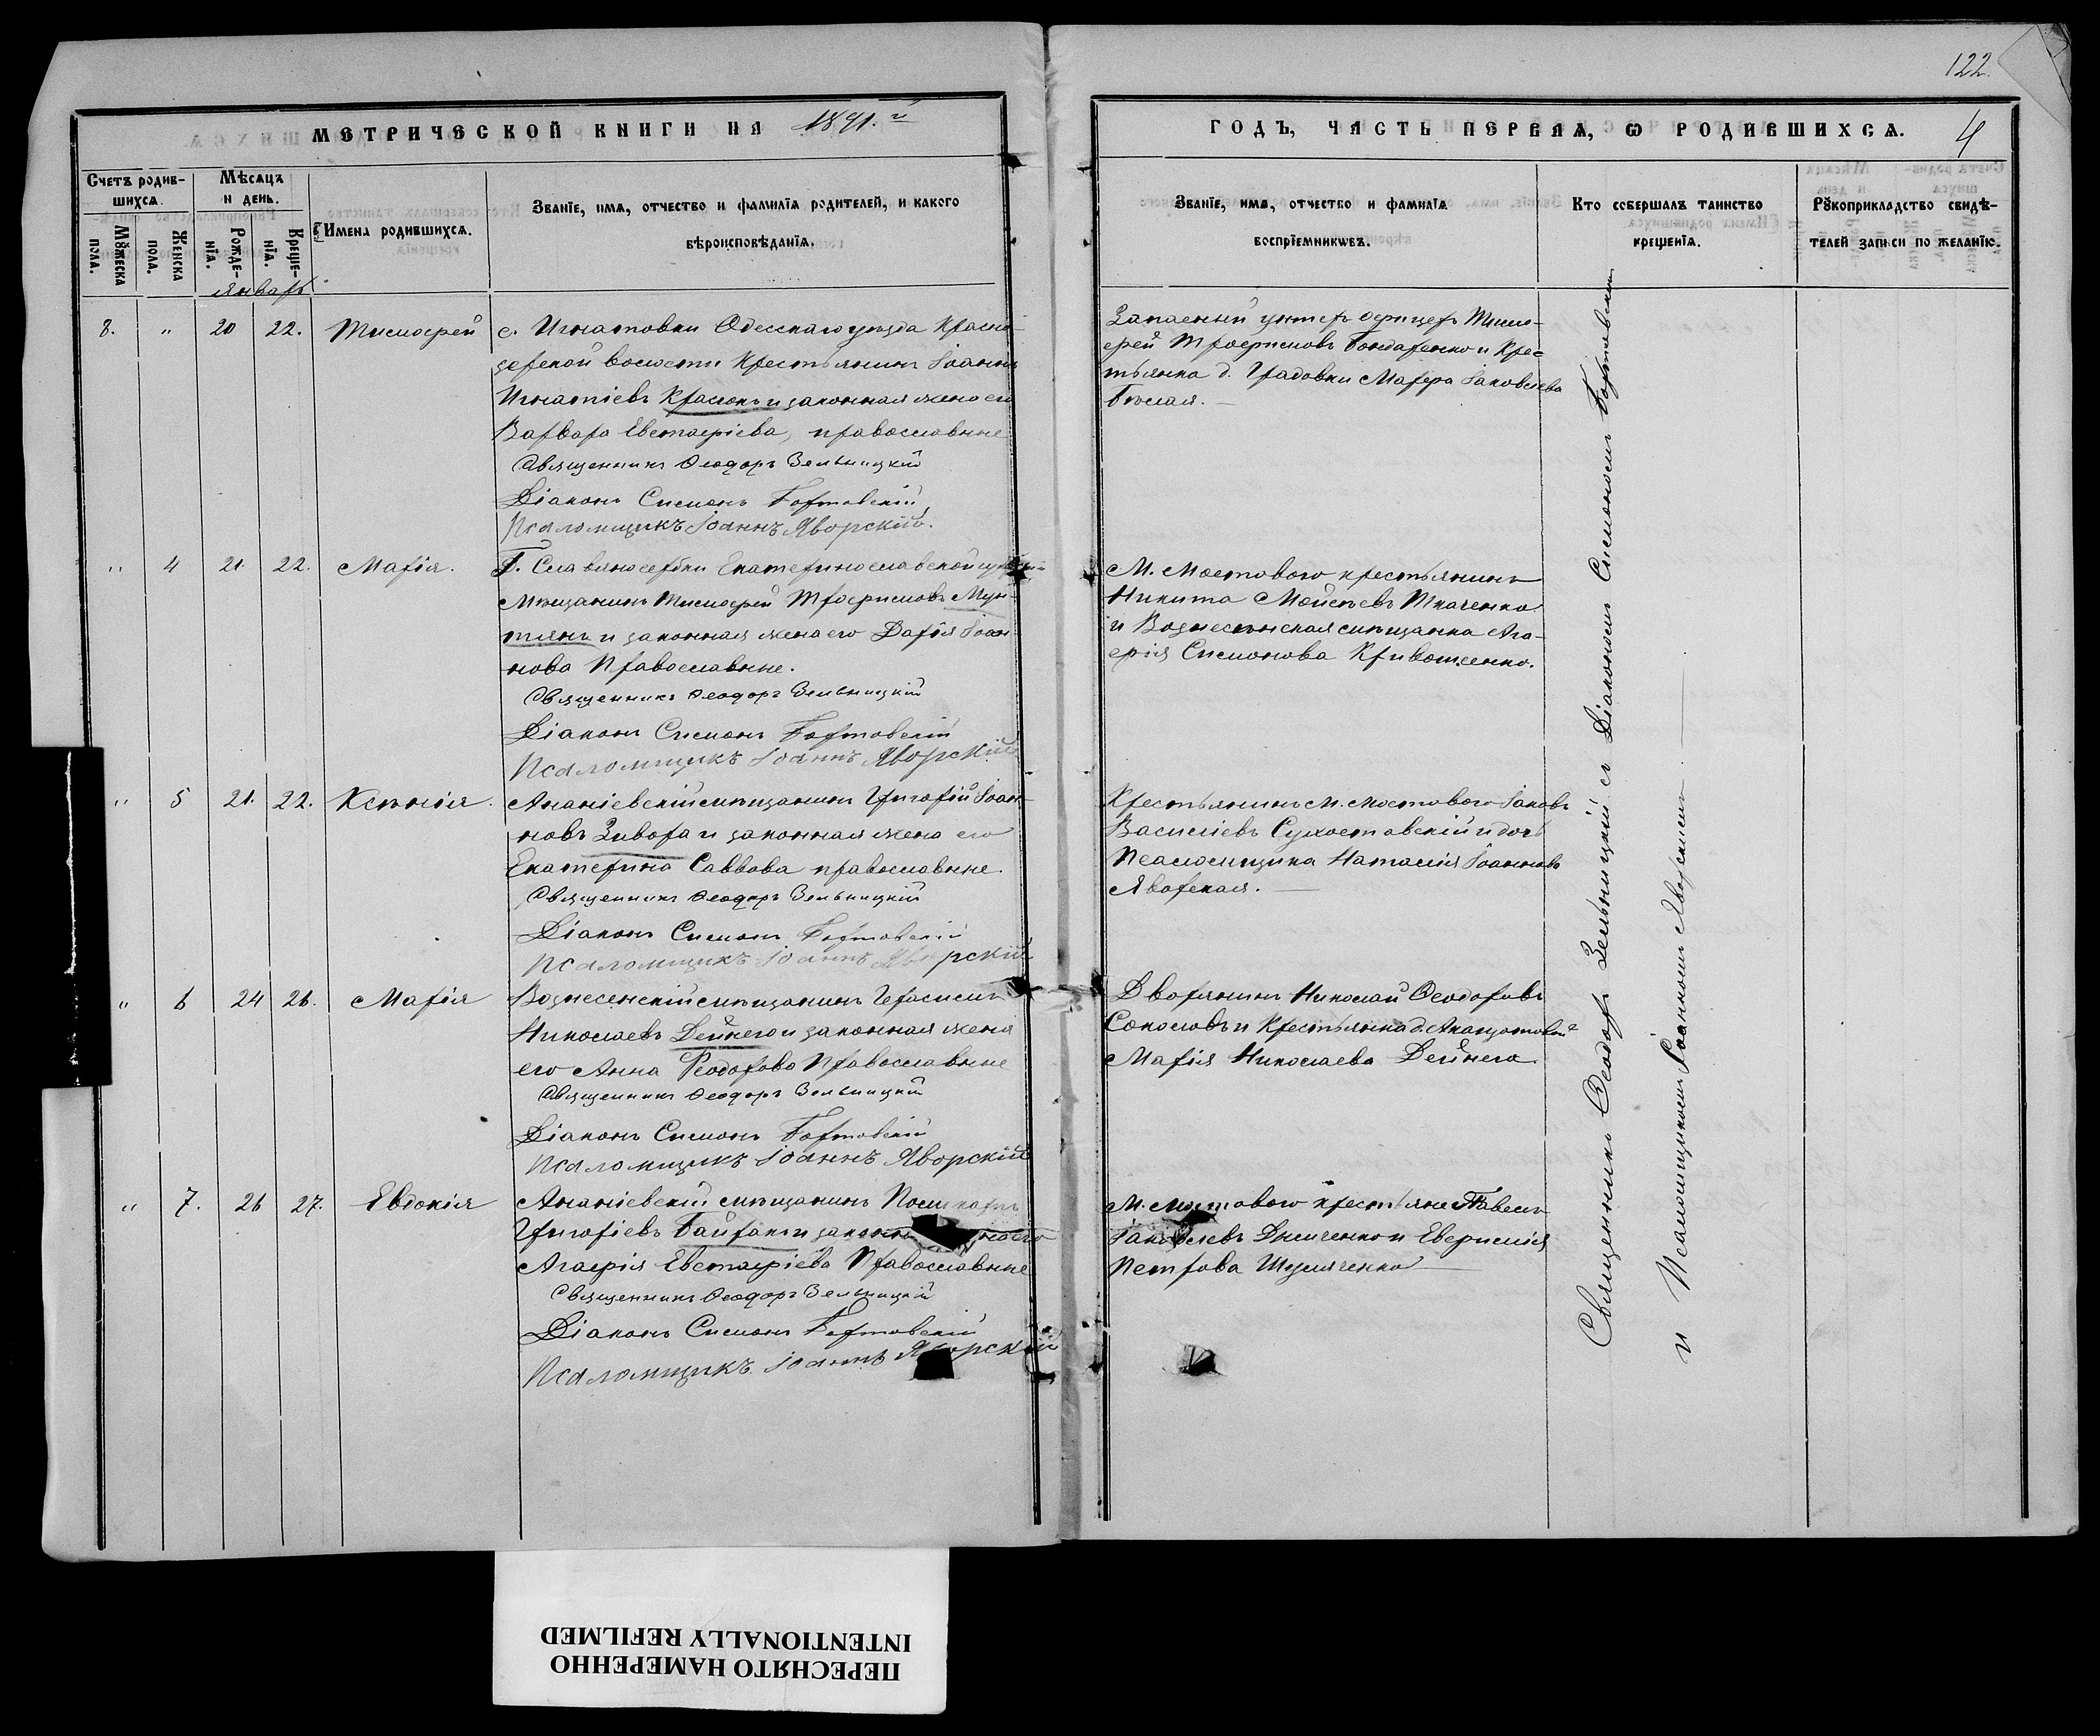 122.
МЕТРИЧЕСКОЙ КНИГИ НА 1891.й
ГОДЪ, ЧАСТЬ ПЕРВАЯ, Ѡ РОДИВШИХСЯ.
4
Счетъ родив-
шихся.
Мѣсяцъ
и день.
Мꙋжеска
пола.
Женска
пола.
Рожде-
нїа.
Креще-
нїа.
Имена родившихся.
Званїе, имя, отчество и фамилїа родителей, и какого
вѣроисповѣданїа.
Званїе, имя, отчество и фамилїа
воспрїемниковъ.
Кто совершалъ таинство
крещенїа.
Рꙋкоприкладство свидѣ-
телей записи по желанїю.
Январь
8. " 20 22. Тимофей
с. Игнатовки Одесскаго уѣзда Красно-
волости Крестьянинъ Іоаннъ
Игнатіевъ и законная жена его
Варвара Евстафіева, православные
Священникъ Ѳеодоръ Зельницкій
Діаконъ Симонъ Бортовскій
Псаломщикъ Іоаннъ Яворскій.
Запасный унтеръ офицеръ Тимо-
фей Трофимовъ Бондаренко и Крес-
тьянка д. Градовки Марфа Іаковлева
Бѣлая.
" 4 21. 22. Марія.
Г. Славяносербки Екатеринославской
Мѣщанинъ Тимофей Трофимовъ Мун-
тянъ и законная жена его Дарія Іоан-
нова Православные.
Священникъ Ѳеодоръ Зельницкій
Діаконъ Симонъ Бортовскій
Псаломщикъ Іоаннъ Яворскій
М. Мостового крестьянинъ
Никита Моисеевъ Ткаченко
и Вознесенская мѣщанка Ага-
фія Симонова
" 5 21. 22. Ксенія.
Ананіевскій мѣщанинъ Григорій Іоан-
новъ Зивора и законная жена его
Екатерина Саввова православные.
Священникъ Ѳеодоръ Зельницкій
Діаконъ Симонъ Бортовскій
Псаломщикъ Іоаннъ Яворскій
Крестьянинъ М. Мостового Іаковъ
Василіевъ Сухостовскій и дочь
Псаломщика Наталія Іоаннова
Яворская.
" 6 24 26. Марія
Вознесенскій мѣщанинъ Герасимъ
Николаевъ Дейнего и законная жена
его Анна Ѳеодорова Православные
Священникъ Ѳеодоръ Зельницкій
Діаконъ Симонъ Бортовскій
Псаломщикъ Іоаннъ Яворскій
Дворянинъ Николай Ѳеодоровъ
Соколовъ и Крестьянка д.
Марія Николаева Дейнега
" 7. 26 27. Евдокія
Ананіевскій мѣщанинъ Поликарпъ
Григоріевъ Байрак и законная жена его
Агафія Евстафіева Православные
Священникъ Ѳеодоръ Зельницкій
Діаконъ Симонъ Бортовскій
Псаломщикъ Іоаннъ Яворскій
М. Мостового крестьяне Павелъ
Іаковлевъ и Евфимія
Петрова
Священникъ Ѳеодоръ Зельницкій съ Діакономъ Симономъ Бортовскимъ
и Псаломщикомъ Іоанномъ Яворскимъ
ПЕРЕСНЯТО НАМЕРЕННО
INTENTIONALLY REFILMED